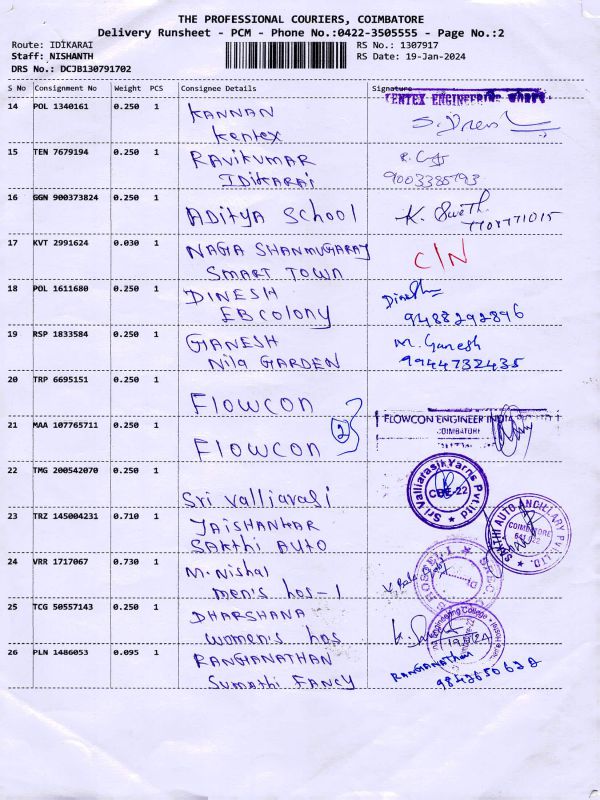 THE PROFESSIONAL COURIERS, COIMBATORE
Delivery Runsheet - PCM - Phone No.:0422-3505555 - Page No.:2
Route: IDIKARAI
RS No.: 1307917
Staff: NISHANTH
RS Date: 19-Jan-2024
DRS No.: DCJB130791702
S No Consignment No Weight PCS Consignee Details Signature
KENTEX ENGINEERING WORKS
14 POL 1340161 0.250 1 KANNAN
Kentex
15 TEN 7679194 0.250 1 RAVIKUMAR
IDIKARAI 9003385793
16 GGN 900373824 0.250 1 ADITYA SCHOOL K. Sweth
17 KVT 2991624 0.030 1 NAGA SHANMUGARAJ C/N
SMART TOWN
18 POL 1611680 0.250 1 DINESH Dinesh
EB COLONY 9488292896
19 RSP 1833584 0.250 1 GANESH M. Ganesh
Nila GARDEN 9944732435
20 TRP 6695151 0.250 1 Flowcon
21 MAA 107765711 0.250 1 Flowcon 2
FLOWCON ENGINEER INDIA
COIMBATORE
22 TMG 200542070 0.250 1 Sri Valliarasi
Sri Valliarasi Yarns Pvt Ltd
CBE-22
23 TRZ 145004231 0.710 1 JAISHANKAR
SAKTHI AUTO
SAKTHI AUTO ANCILLARY PVT. LTD.
COIMBATORE
641 022
24 VRR 1717067 0.730 1 M. Nishal
men's hos-1
HOSTEL
25 TCG 50557143 0.250 1 DHARSHANA
women's hos
Engineering College
26 PLN 1486053 0.095 1 RANGANATHAN RANGANATHAN
Sumathi FANCY